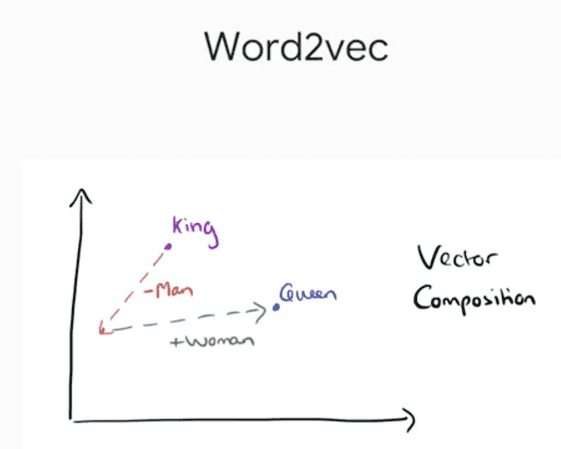 Word2vec
King
-Man
Queen
+Woman
Vector
Composition